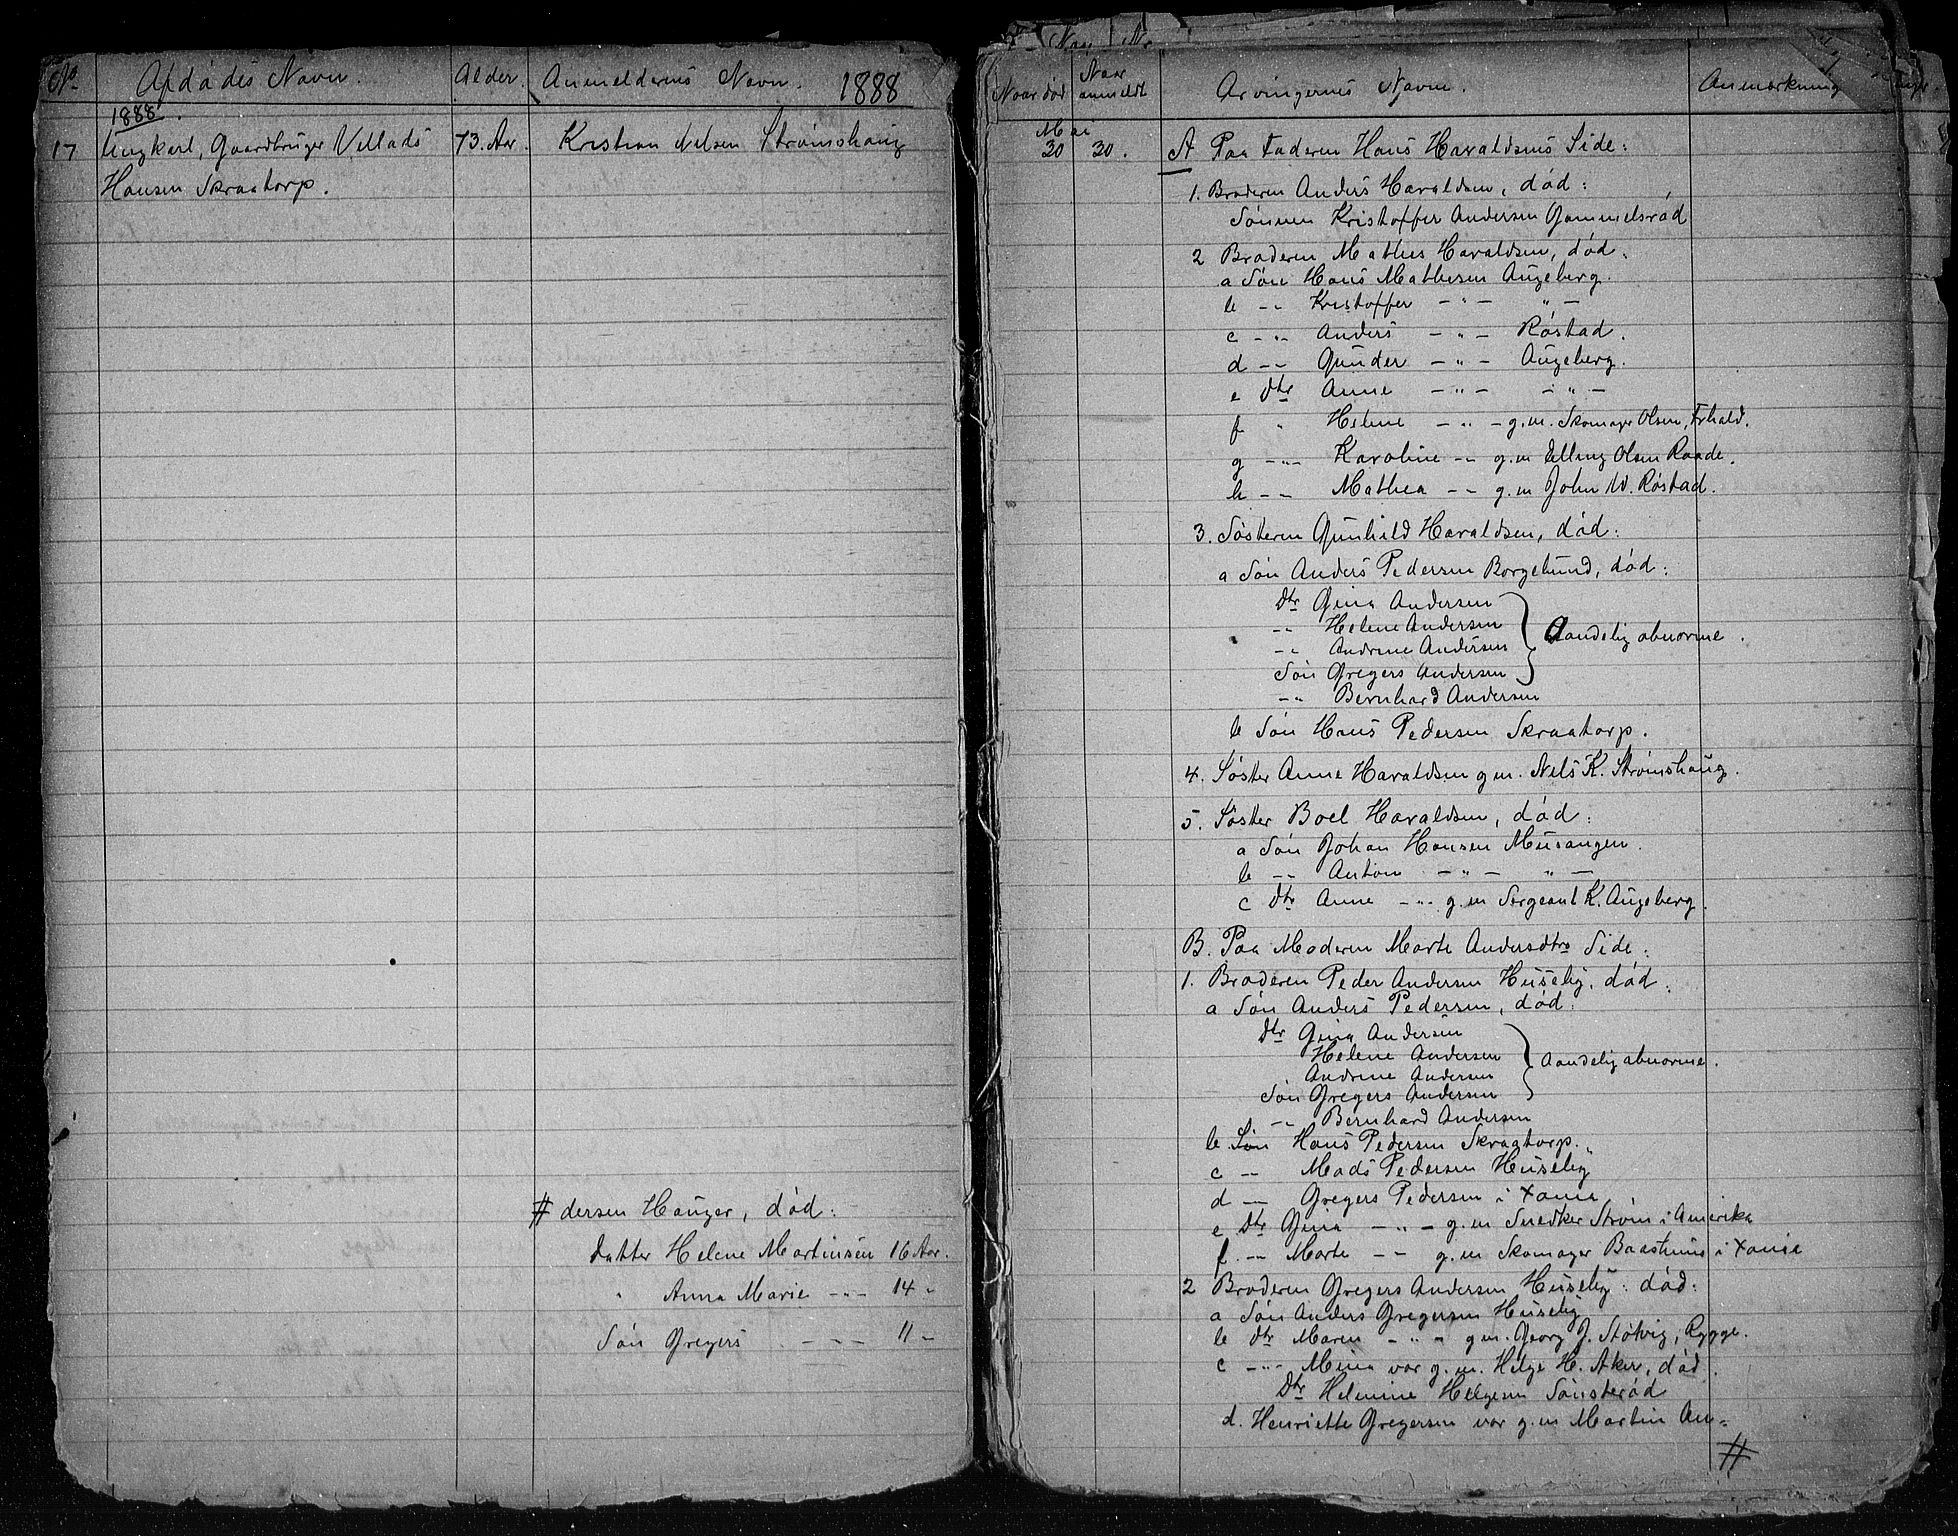 No. Afdødes Navn. Alder. Anmelderens Navn. 1888
1888.
17 Ungkarl, Gaardbruger Vellads 73. Aar. Kristian Nilsen Strømshaug
Hansen Skraatorp.
# dersen Hauger, død:
Datter Helene Martinsen 16 Aar.
" Anna Marie -"- 14 "
Søn Gregers -"- 11 "
Naar død Naar anmeldt Arvingernes Navn. Anmærkning
Mai
30 30. A Paa Faderen Hans Haraldsens Side:
1. Broderen Anders Haraldsen, død:
Sønnen Kristoffer Andersen Gammelsrød
2 Broderen Mathis Haraldsen, død.
a Søn Hans Mathesen Augeberg.
b -"- Kristoffer -"- "-
c -"- Anders -"- Røstad.
d -"- Gunder -"- Augeberg.
e Dtr Anne -"- -"-
f " Helene -"- g.m. Skomager Olsen, Frhald.
g -"- Karoline -"- g.m Elling Olsen Raade.
h -"- Mathea -"- g.m John W. Røstad.
3. Søsteren Gunhild Haraldsen, død:
a Søn Anders Pedersen Borgelund, død:
Dtr Gina Andersen
-"- Helene Andersen
-"- Andrine Andersen Aandelig abnorme.
Søn Gregers Andersen
-"- Bernhard Andersen
b Søn Hans Pedersen Skraatorp.
4. Søster Anne Haraldsen g.m. Nils K. Strømshaug.
5. Søster Boel Haraldsen, død:
a Søn Johan Hansen Musangen.
b -"- Anton -"- "-
c Dtr Anne -"- g.m Sergeant K. Augeberg.
B. Paa Moderen Marte Andersdtrs Side:
1. Broderen Peder Andersen Huseby, død.
a Søn Anders Pedersen, død:
Dtr Gina Andersen
Helene Andersen Aandelig abnorme.
Andrine Andersen
Søn Gregers Andersen
-"- Bernhard Andersen
b Søn Hans Pedersen Skraatorp.
c -"- Mads Pedersen Huseby
d -"- Gregers Pedersen i Xania
e Dtr Gina -"- g.m Snedker Strøm i Amerika
f -"- Marte -"- g.m Skomager Baastnus i Xania
2 Broderen Gregers Andersen Huseby: død:
a Søn Anders Gregersen Huseby
b Dtr Maren -"- g.m. Georg J. Støtvig, Rygge.
c -"- Mina var g.m. Helge H. Aker, død.
Dtr Helmine Helgesen Sønsterød
d. Henriette Gregersen var g.m Martin An=
#